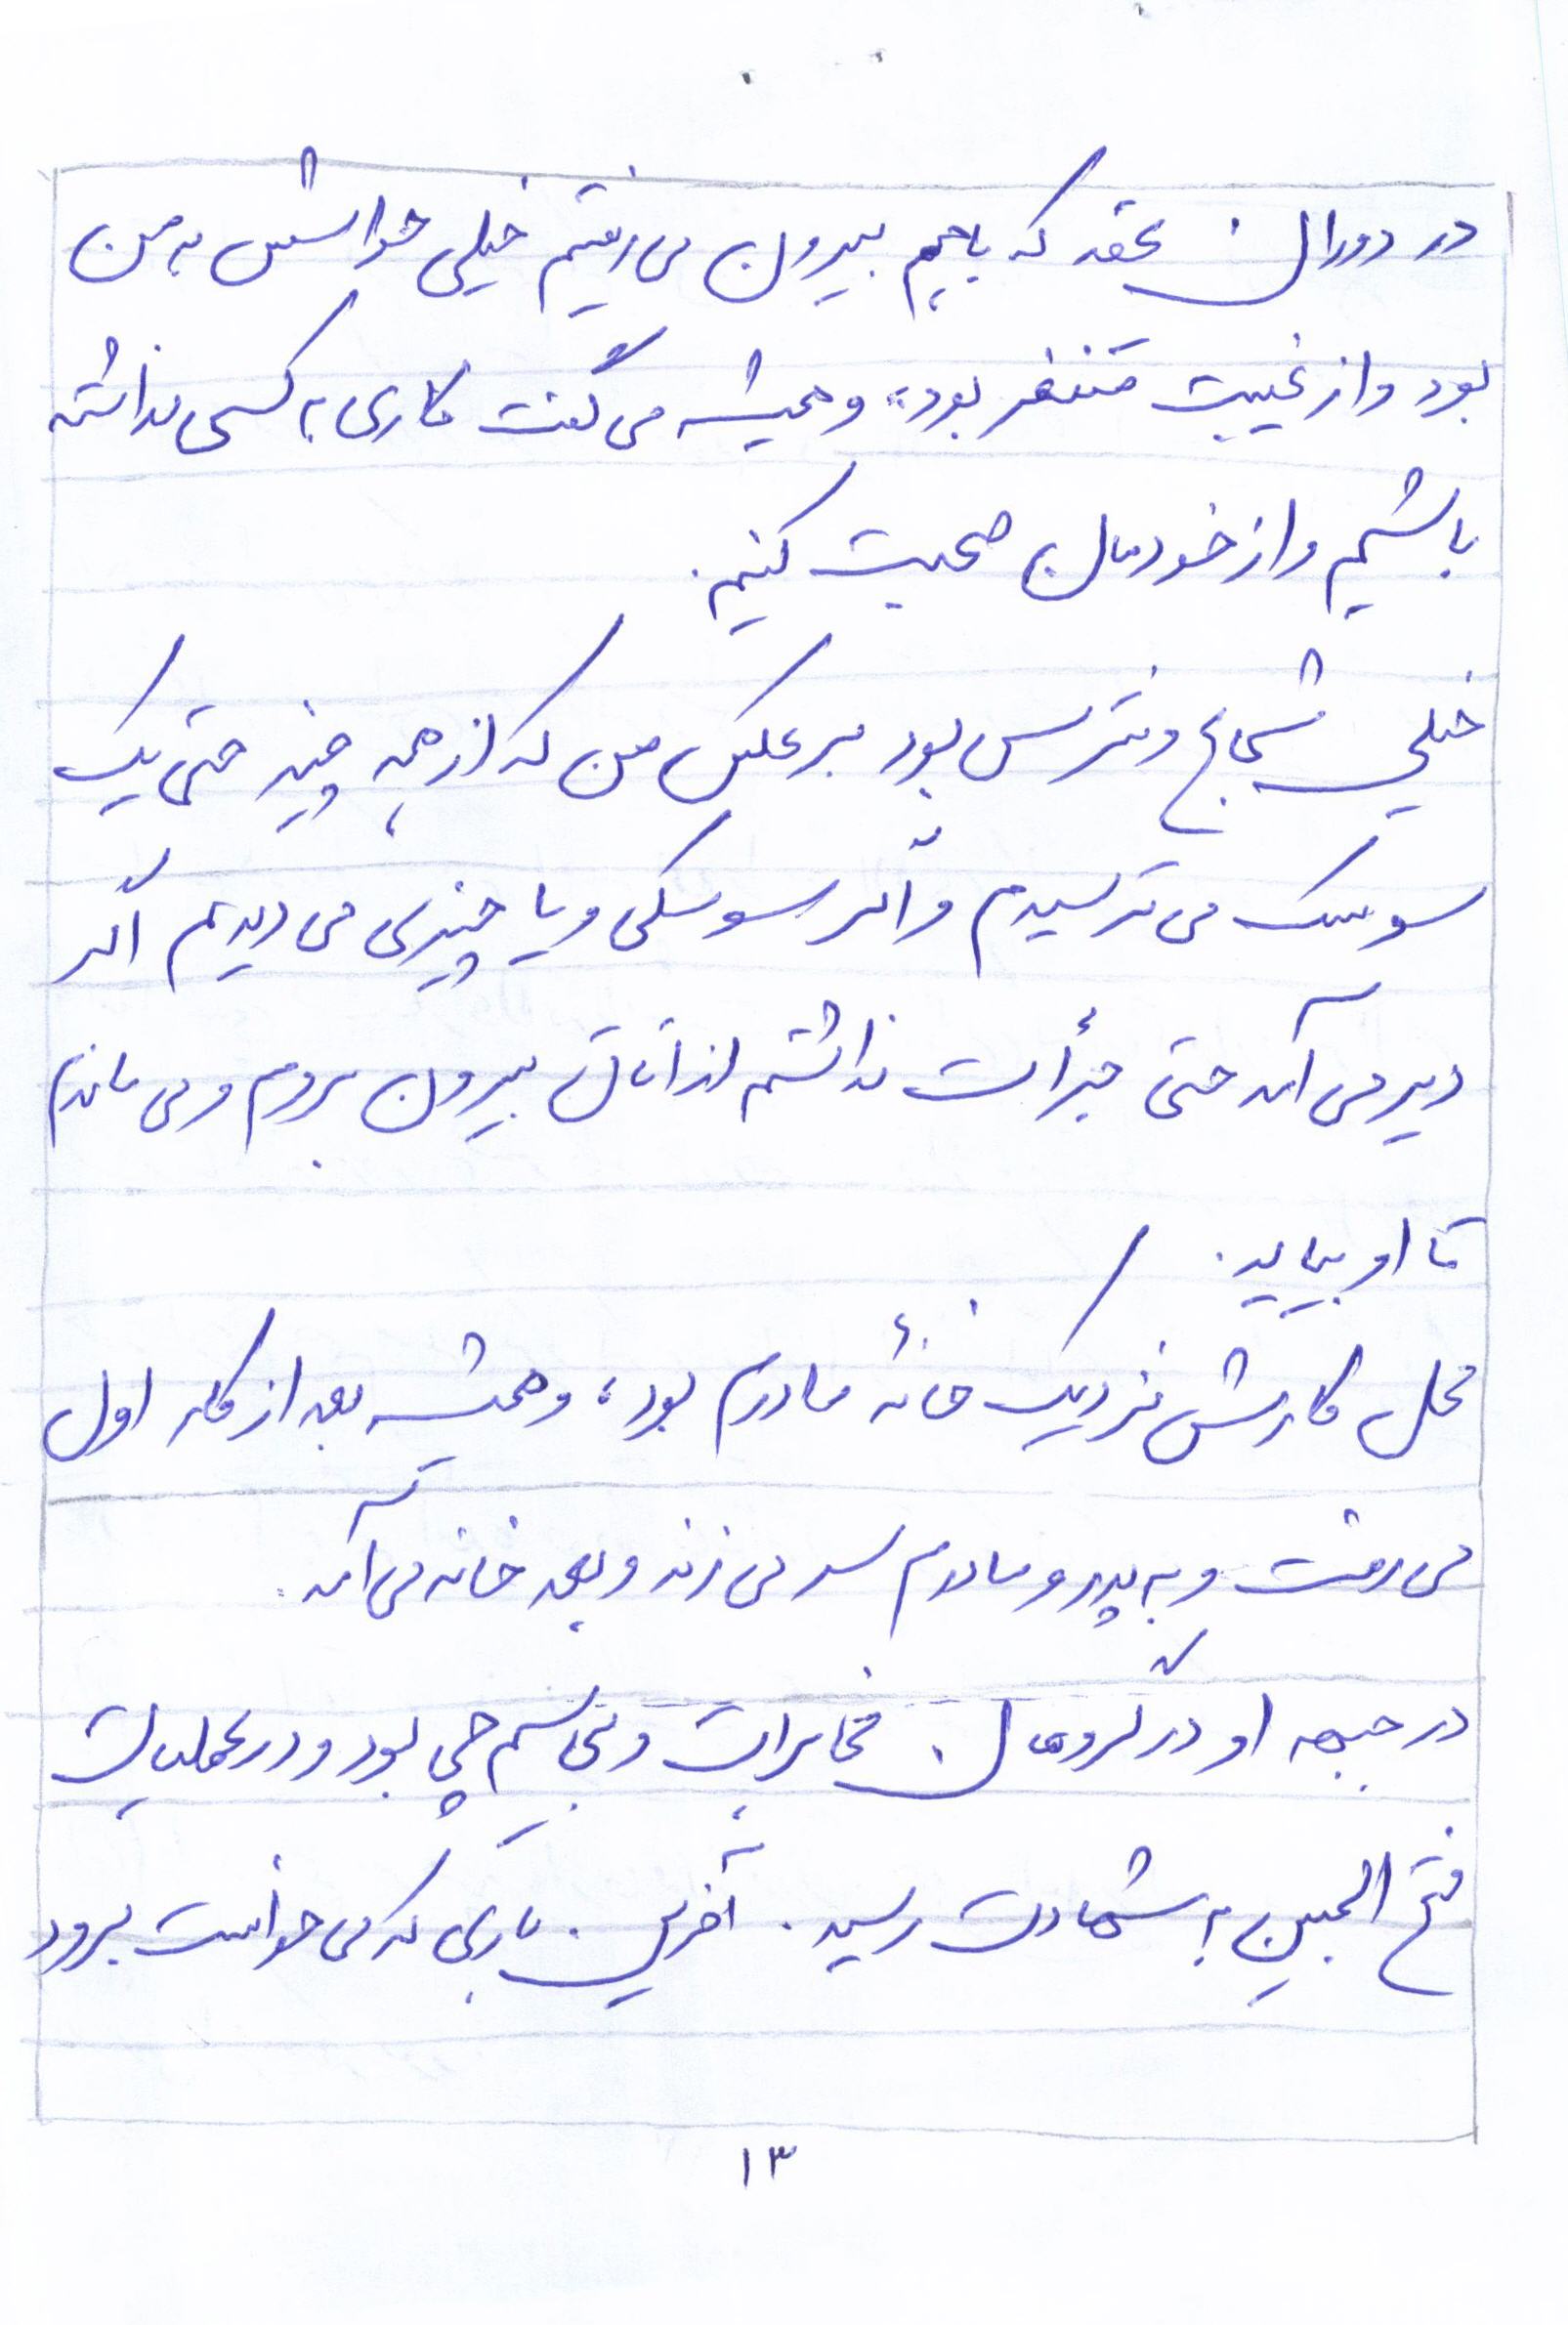 در دوران عقد که باهم بیرون می رفتیم خیلی حواسش به من
بود و از غیبت متنفر بود، و همیشه می گفت کاری به کسی نداشته
باشیم و از خودمان صحبت کنیم.
خیلی شجاع و نترس بود برعکس من که از همه چیز حتی یک
سوسک می ترسیدم و اگر سوسکی و یا چیزی می دیدیم اگر
دیر می آمد حتی جرأت نداشتم از اتاق بیرون بروم و می ماندم
تا او بیاید.
محل کارش نزدیک خانۀ مادرم بود، و همیشه بعد از کار اول
می رفت و به پدر و مادرم سر می زند و بعد خانه می آمد.
در جبهه او در گروهان مخابرات و بی سیم چی بود و در عملیات
فتح المبین به شهادت رسید. آخرین باری که می خواست برود
۱۳